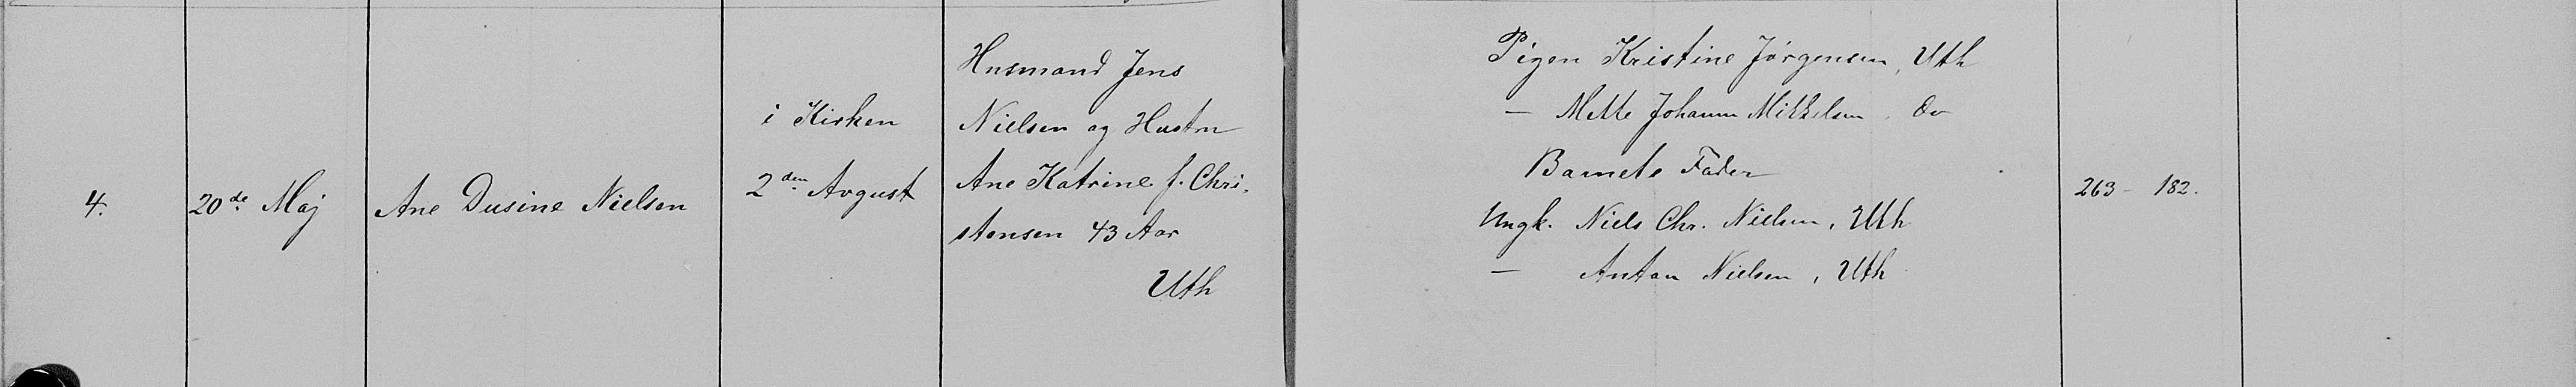 4.
20de Maj
Ane Dusine Nielsen
i Kirken
2den Avgust
Husmand Jens
Nielsen og Hustru
Ane Katrine f. Chri-
stensen 43 Aar
Uth
Pigen Kristine Jørgensen, Uth
— Mette Johanne Mikkelsen. do
Barnets Fader
Ungk. Niels Chr. Nielsen, Uth
— Anton Nielsen, Uth
263 - 182.